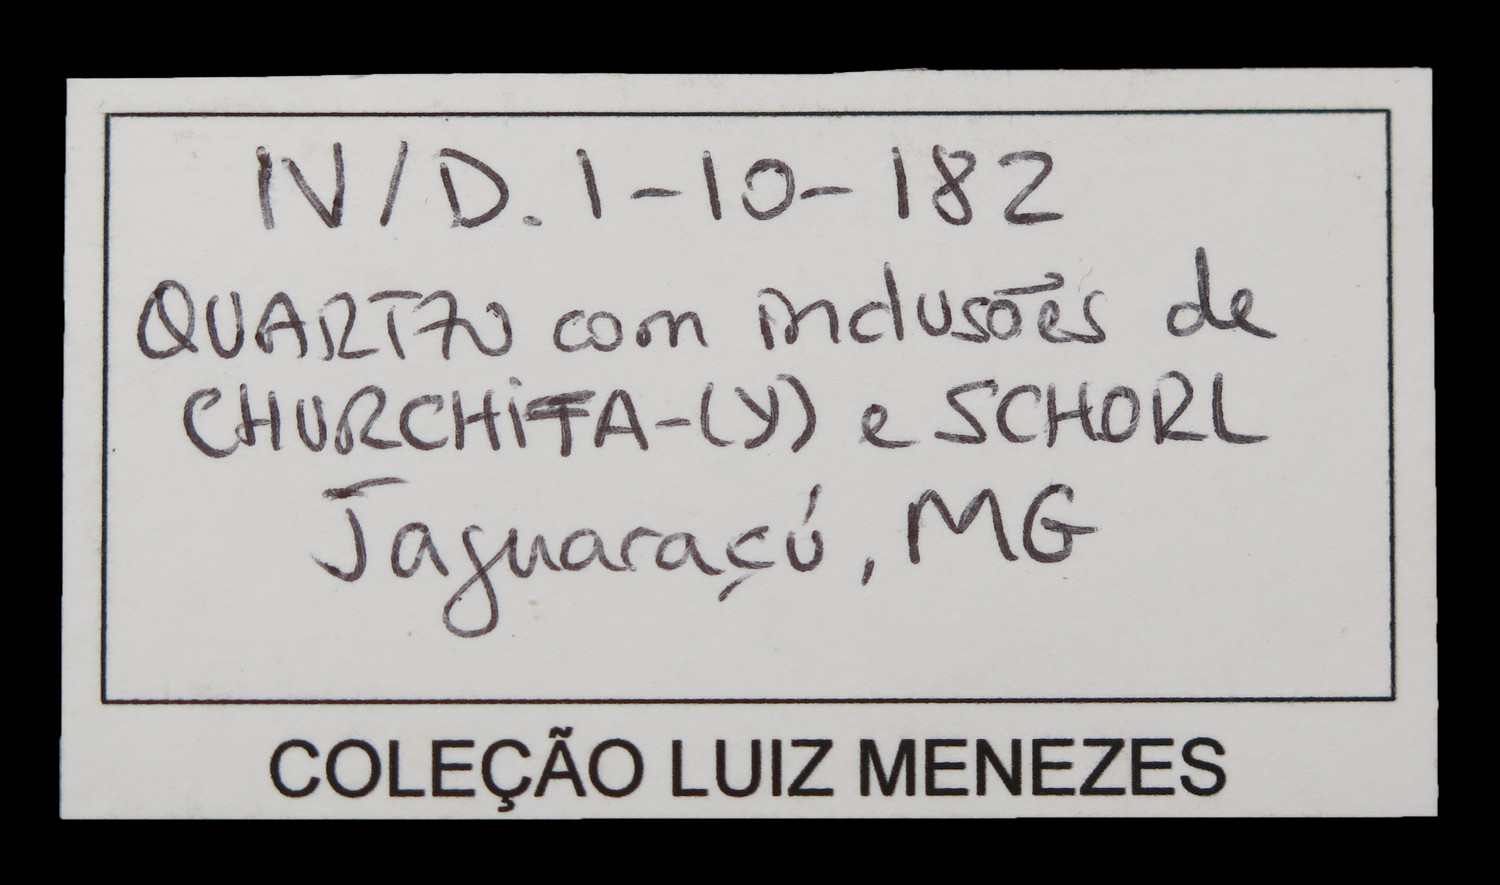 IV/D.1-10-182
QUARTZO com inclusões de
CHURCHITA-(Y) e SCHORL
Jaguaraçú, MG
COLEÇÃO LUIZ MENEZES